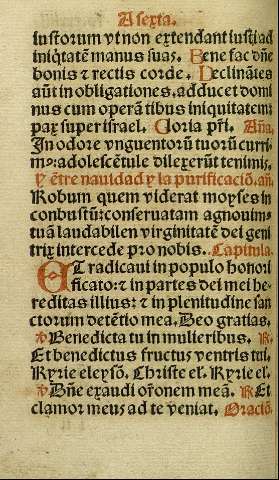 A sexta.
iustorum vt non extendant iusti ad
iniq̃tatẽ manus suas. Bene fac dñe
bonis ⁊ rectis corde. Declinãtes
aũt in obligationes. adducet domi
nus cum operã tibus iniquitatem:
pax super israel. Gloria pr̃i. Aña.
In odore vnguentorũ tuorũ curri
mus: adolescẽtule dilexerũt te nimis.
y ẽtre nauidad y la purificaciõ. añ.
Robum quem viderat moyses in
conbustũ: conseruatam agnouimus
tuã laudabilen virginitatẽ dei geni
trix intercede pro nobis. Capitula.
ET radicaui in populo honori
ficato: ⁊ in partes dei mei he-
reditas illius: ⁊ in plenitudine san
ctorum detẽtio mea. Deo gratias.
℣ Benedicta tu in mulieribus. ℟.
Et benedictus fructus ventris tui.
Kyrie eleysõ. Christe el. Kyrie el.
℣ Dñe exaudi or̃onem meã. ℟ Et
clamor meus ad te veniat. Oraciõ.